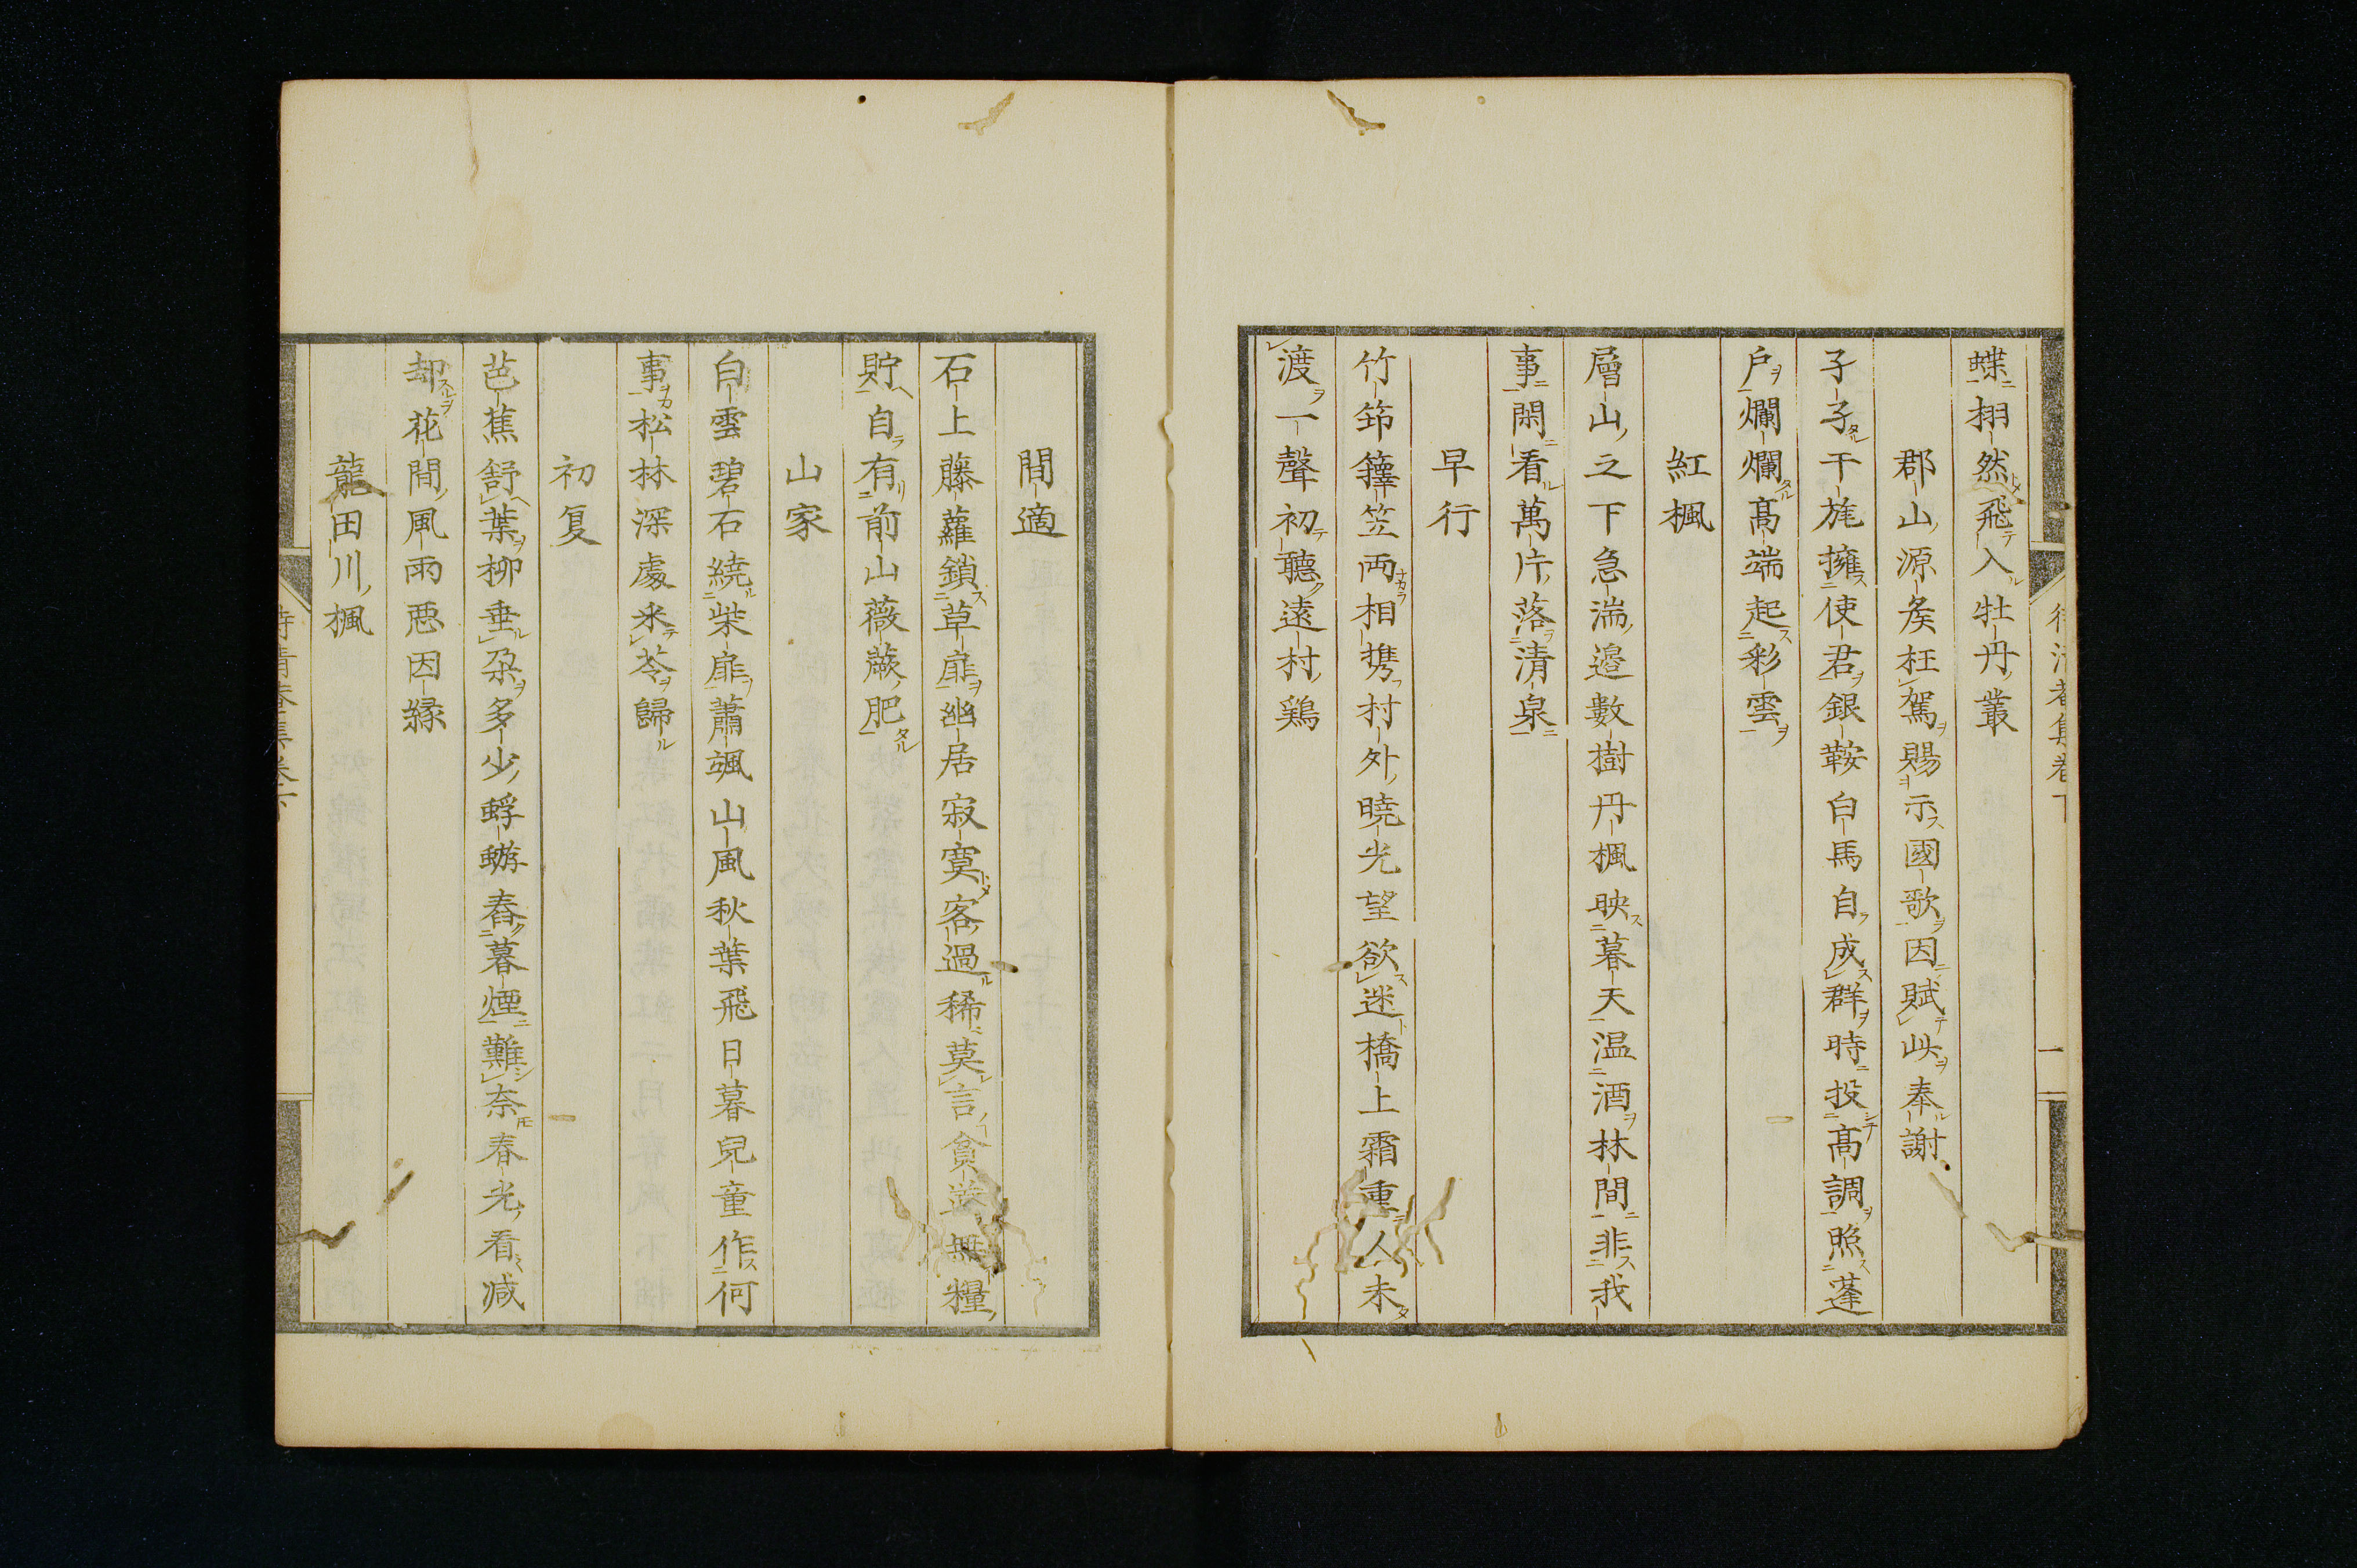 蝶栩然飛入牡丹叢
郡山源矦枉駕賜示國歌因賦此奉謝
孑孑干旄擁使君銀鞍白馬自成群時投髙調照蓬
戶爛爛髙端起彩雲
紅楓
層山之下急湍邉數樹丹楓映暮天温酒林間非我
事閑看萬片落清泉
早行
竹笻籜笠両相携村外曉光望欲迷橋上霜重人未
渡一聲初聽遠村鶏
間適
石上藤蘿鎖草扉幽居寂寞客過稀莫言貧道無糧
貯自有前山薇蕨肥
山家
白雲碧石繞柴扉蕭颯山風秋葉飛日暮兒童作何
事松林深處采苓歸
初夏
芭蕉舒葉柳垂朶多少蜉蝣舂暮煙難奈春光看减
却花間風雨悪因縁
龍田川楓